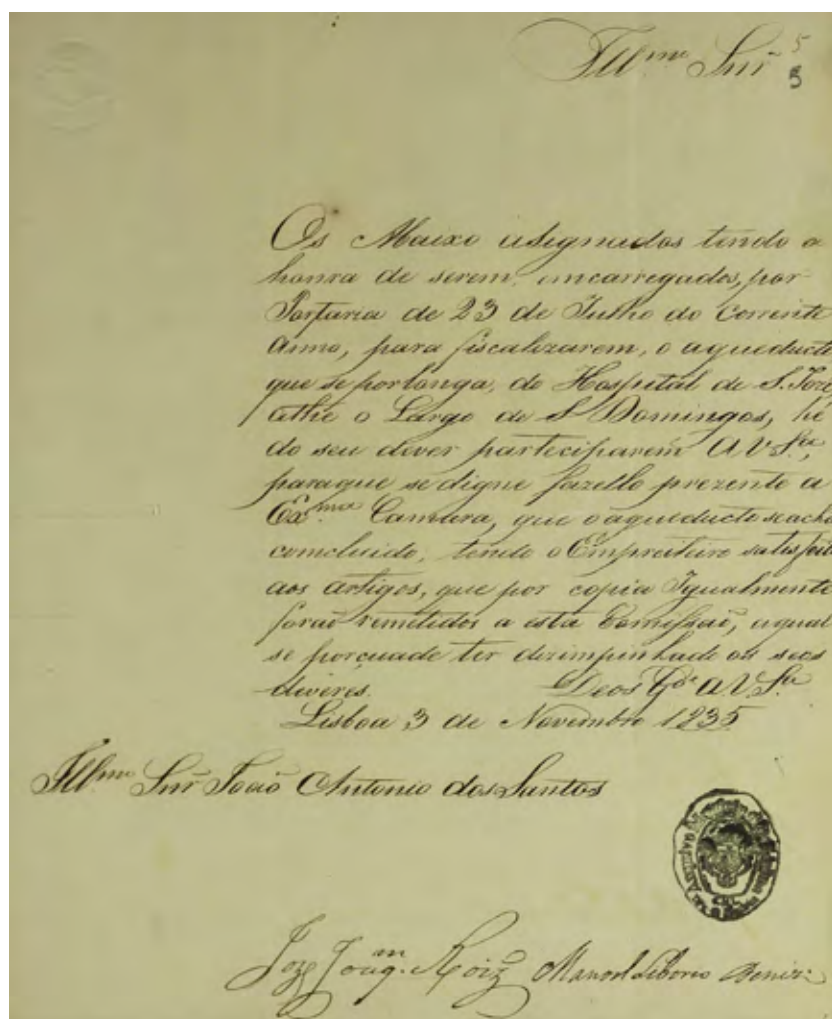 Ill.mo Snr
5
5
Os Abaixo asignados tendo a
honra de serem, encarregados, por
Portaria de 23 de Julho do Corrente
Anno, para fiscalizarem, o aqueducto
que se porlonga, do Hospital de S. Joze
athe o Largo de S Domingos, hé
do seu dever participarem a V S.ª,
paraque se digne fazello prezente a
Ex.ma Camara, que o aqueducto se acha
comcluido, tendo o Empreiteiro satisfeito
aos artigos, que por copia Igualmente
foraõ remetidos a esta Comissaõ, a qual
se porçuade ter dezimpinhado os seos
deveres. Deos G.de a V. S.ª
Lisboa 3 de Novembro 1835
Ill.mo Snr Joaõ Antonio dos Santos
Joze Joaq.m Roiz Manoel Liborio